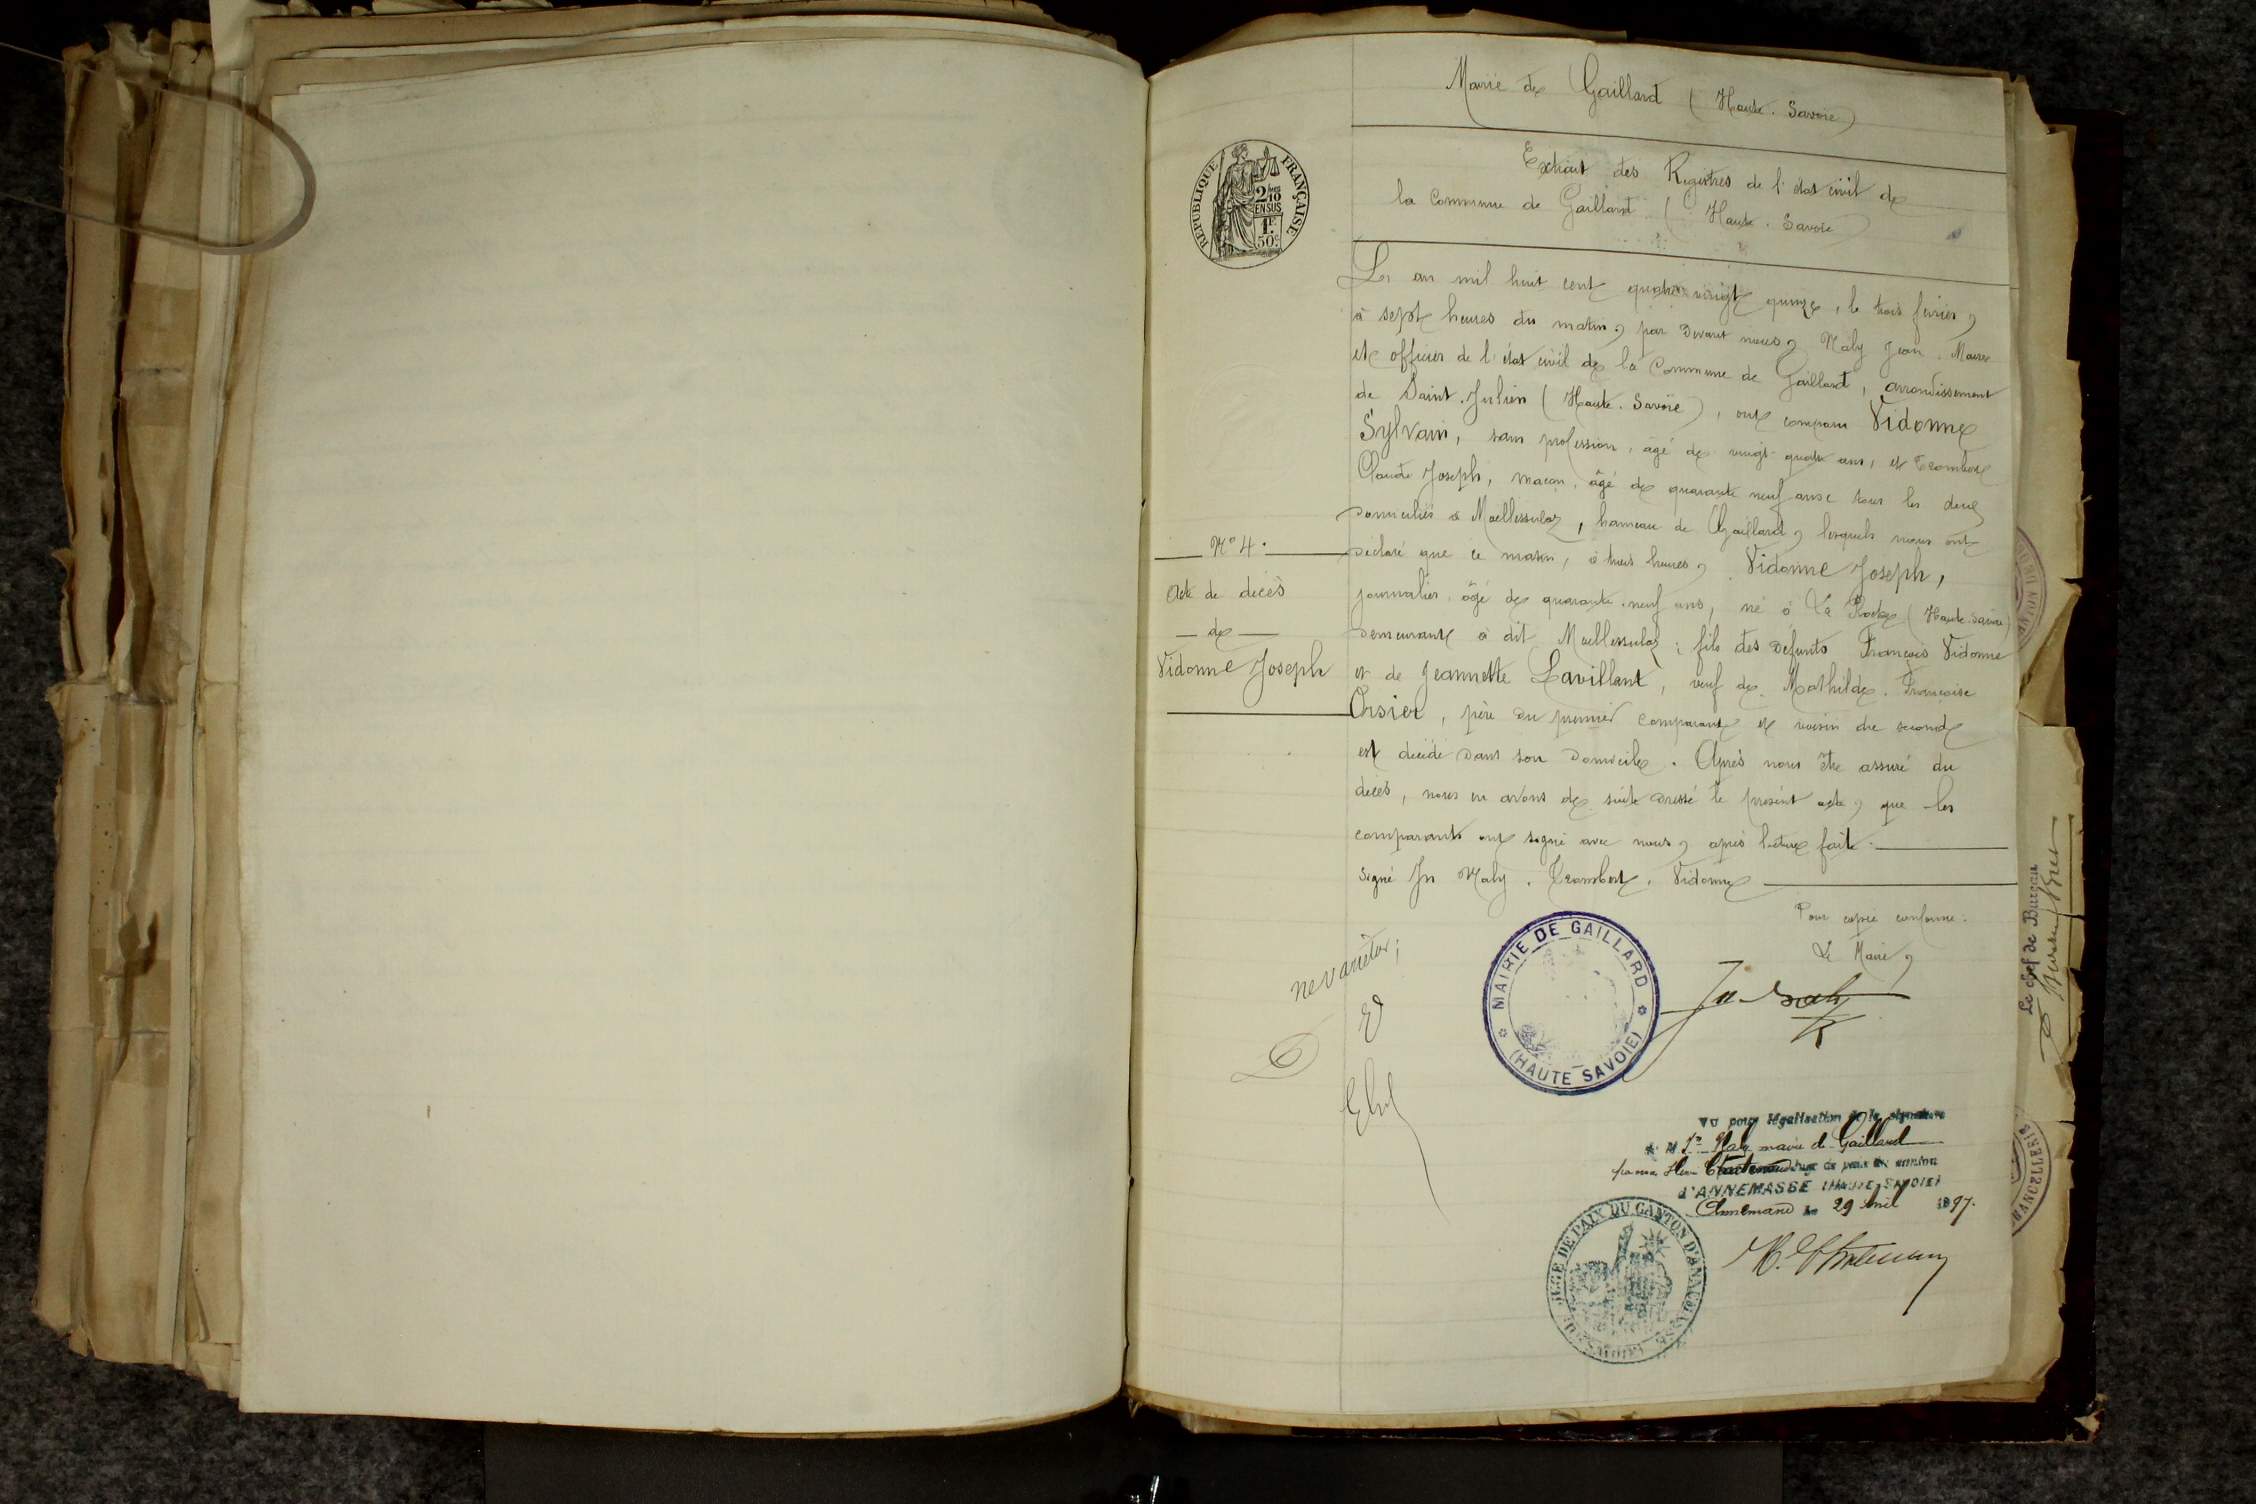 Mairie de Gaillard (Haute-Savoie)
Extrait des Registres de l'état civil de
la Commune de Gaillard (Haute-Savoie)
RÉPUBLIQUE FRANÇAISE
2/10
EN SUS
1F
50c
L'an mil huit cent quatre vingt quinze, le trois février,
à sept heures du matin, par devant nous, Naly Jean, Maire
et officier de l'état civil de la Commune de Gaillard, arrondissement
de Saint-Julien (Haute-Savoie), ont comparu Vidonne
Sylvain, sans profession, âgé de vingt-quatre ans, et Trombert
Claude Joseph, maçon, âgé de quarante neuf ans tous les deux
domiciliés à Moellessulaz, hameau de Gaillard, lesquels nous ont
déclaré que ce matin, à trois heures, Vidonne Joseph,
journalier, âgé de quarante-neuf ans, né à La Roche (Haute-Savoie)
demeurant à dit Moellessulaz; fils des défunts François Vidonne
et de Jeannette Lavillant, veuf de Mathilde Françoise
Orsier, père du premier comparant et voisin du second
est décédé dans son domicile. Après nous être assuré du
décès, nous en avons de suite dressé le présent acte, que les
comparants ont signé avec nous, après lecture faite.
Signé Jn Naly. Trombert. Vidonne
N° 4.
Acte de décès
de
Vidonne Joseph
Pour copie conforme:
Le Maire,
ne varietur;
MAIRIE DE GAILLARD
(HAUTE SAVOIE)
Vu pour légalisation de la signature
de M Jn Naly maire de Gaillard
par nous Juge de paix du canton
d'ANNEMASSE (HAUTE SAVOIE)
Annemasse le 29 avril 1897.
JUGE DE PAIX DU CANTON D'ANNEMASSE
Le chef de Bureau
CHANCELLERIE